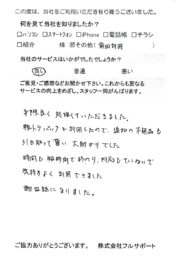 この度は、当社をご利用いただき有り難うございました。
何を見て当社を知りましたか?
□パソコン □スマートフォン □iPhone □電話帳 □チラシ
□紹介 様 図その他( 再利用
当社のサービスはいかがでしたでしょうか?
良い 普通 悪い
ご意見・ご感想などお聞かせ下さい。これからも更なる
サービスの向上をめざし、スタッフ一同がんばります。
手際良く処理していただきました。
軽トラパックを利用したので、追加の不用品も
引き取って貰い大助かりでした
時間も短時間で終わり、対応もていねいで
気持よく利用できました
お世話になりました。
ご協力ありがとうございます。 株式会社フルサポート